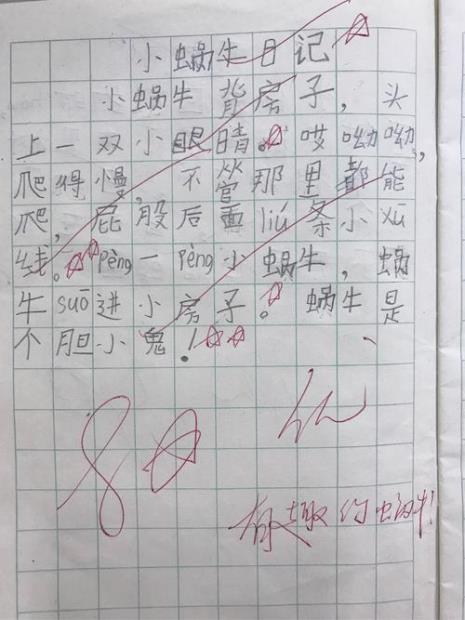 小蜗牛日记
小蜗牛背房子，头
上一双小眼睛。哎呦呦，
爬得慢，不管那里都能
爬，屁股后面liú条小xū
线。pèng一pèng小蜗牛，蜗
牛suō进小房子。蜗牛是
个胆小鬼！
8☆ 优
有趣的蜗牛！